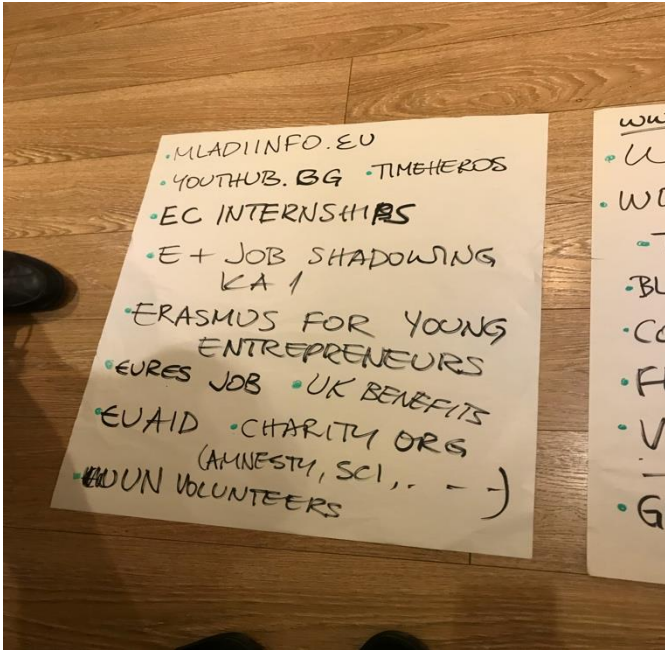 • MLADIINFO.EU
• YOUTHUB.BG • TIMEHEROS
• EC INTERNSHIPS
• E + JOB SHADOWING
KA 1
• ERASMUS FOR YOUNG
ENTREPRENEURS
• EURES JOB • UK BENEFITS
• EU AID • CHARITY ORG
(AMNESTY, SCI, . - - -)
• UN VOLUNTEERS